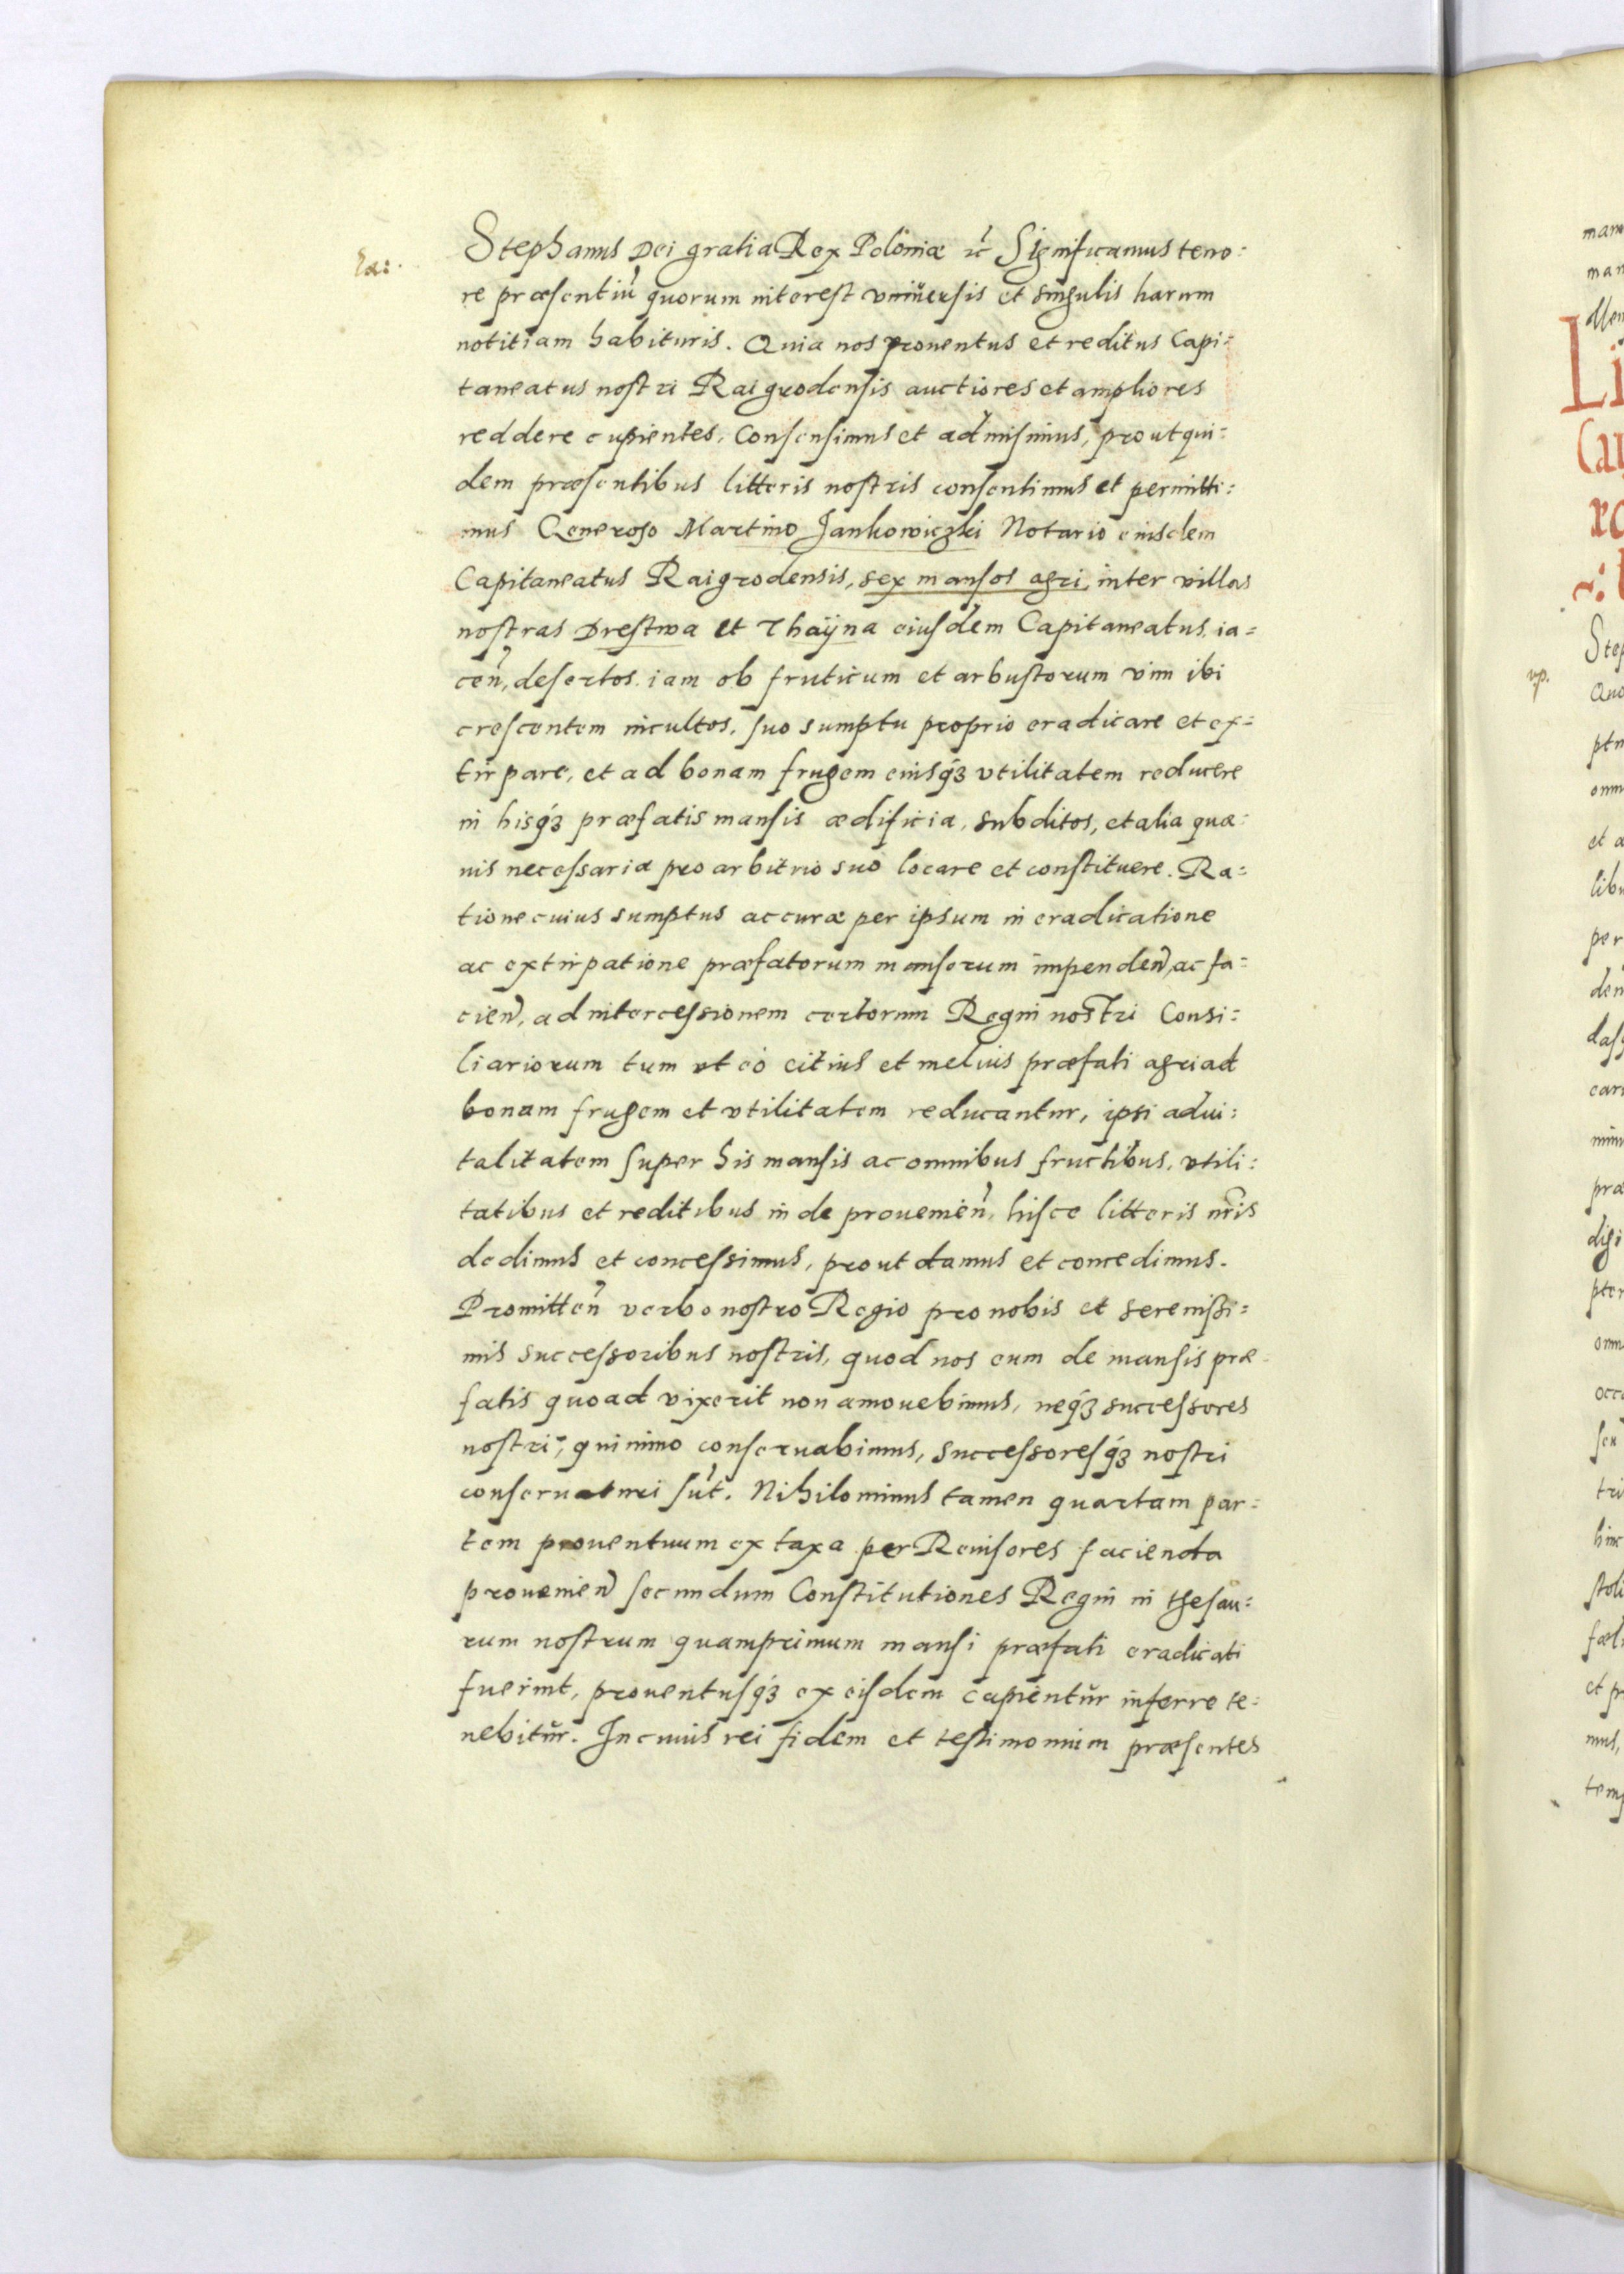 Stephanus Dei gratia Rex Poloniæ &c̃ Significamus teno:
re præsentiũ quorum interest vniuersis et singulis harum
notitiam habituris. Quia nos prouentus et reditus Capi:
taneatus nostri Raigrodensis auctiores et ampliores
reddere cupientes, Consensimus et admisimus, prout qui:
dem præsentibus litteris nostris consentimus et permitti:
mus Generoso Martino Jankowiczki Notario eiusdem
Capitaneatus Raigrodensis, sex mansos agri, inter villas
nostras Drestwa et Thaÿna eiusdem Capitaneatus ia=
ceñ, desertos iam ob fruticum et arbustorum vim ibi
crescentem incultos, suo sumptu proprio eradicare et ex=
tirpare, et ad bonam frugem eiusq́ꝫ vtilitatem reducere
in hisq́ꝫ præfatis mansis ædificia, subditos, et alia quæ:
uis necessaria pro arbitrio suo locare et constituere. Ra=
tione cuius sumptus ac curæ per ipsum in eradicatione
ac extirpatione præfatorum mansorum impendeñ, ac fa=
cieñ, ad intercessionem certorum Regni nostri Consi:
liariorum tum vt eò citius et melius præfati agri ad
bonam frugem et vtilitatem reducantur, ipsi adui:
talitatem super his mansis ac omnibus fructibus, vtili:
tatibus et reditibus inde prouenieñ, hisce litteris nr̃is
dedimus et concessimus, prout damus et concedimus.
Promitteñ verbo nostro Regio pro nobis et serenissi=
mis successoribus nostris, quod nos eum de mansis præ
fatis quoad vixerit non amouebimus, neq́ꝫ successores
nostri, quinimo conseruabimus, successoresq́ꝫ nostri
conseruaturi sũt. Nihilominus tamen quartam par=
tem prouentuum ex taxa per Reuisores facienda
prouenieñ secundum Constitutiones Regni in thesau:
rum nostrum quamprimum mansi præfati eradicati
fuerint, prouentusq́ꝫ ex eisdem capientŭr inferre te:
nebitŭr. In cuius rei fidem et testimonium præsentes
vp.
Li